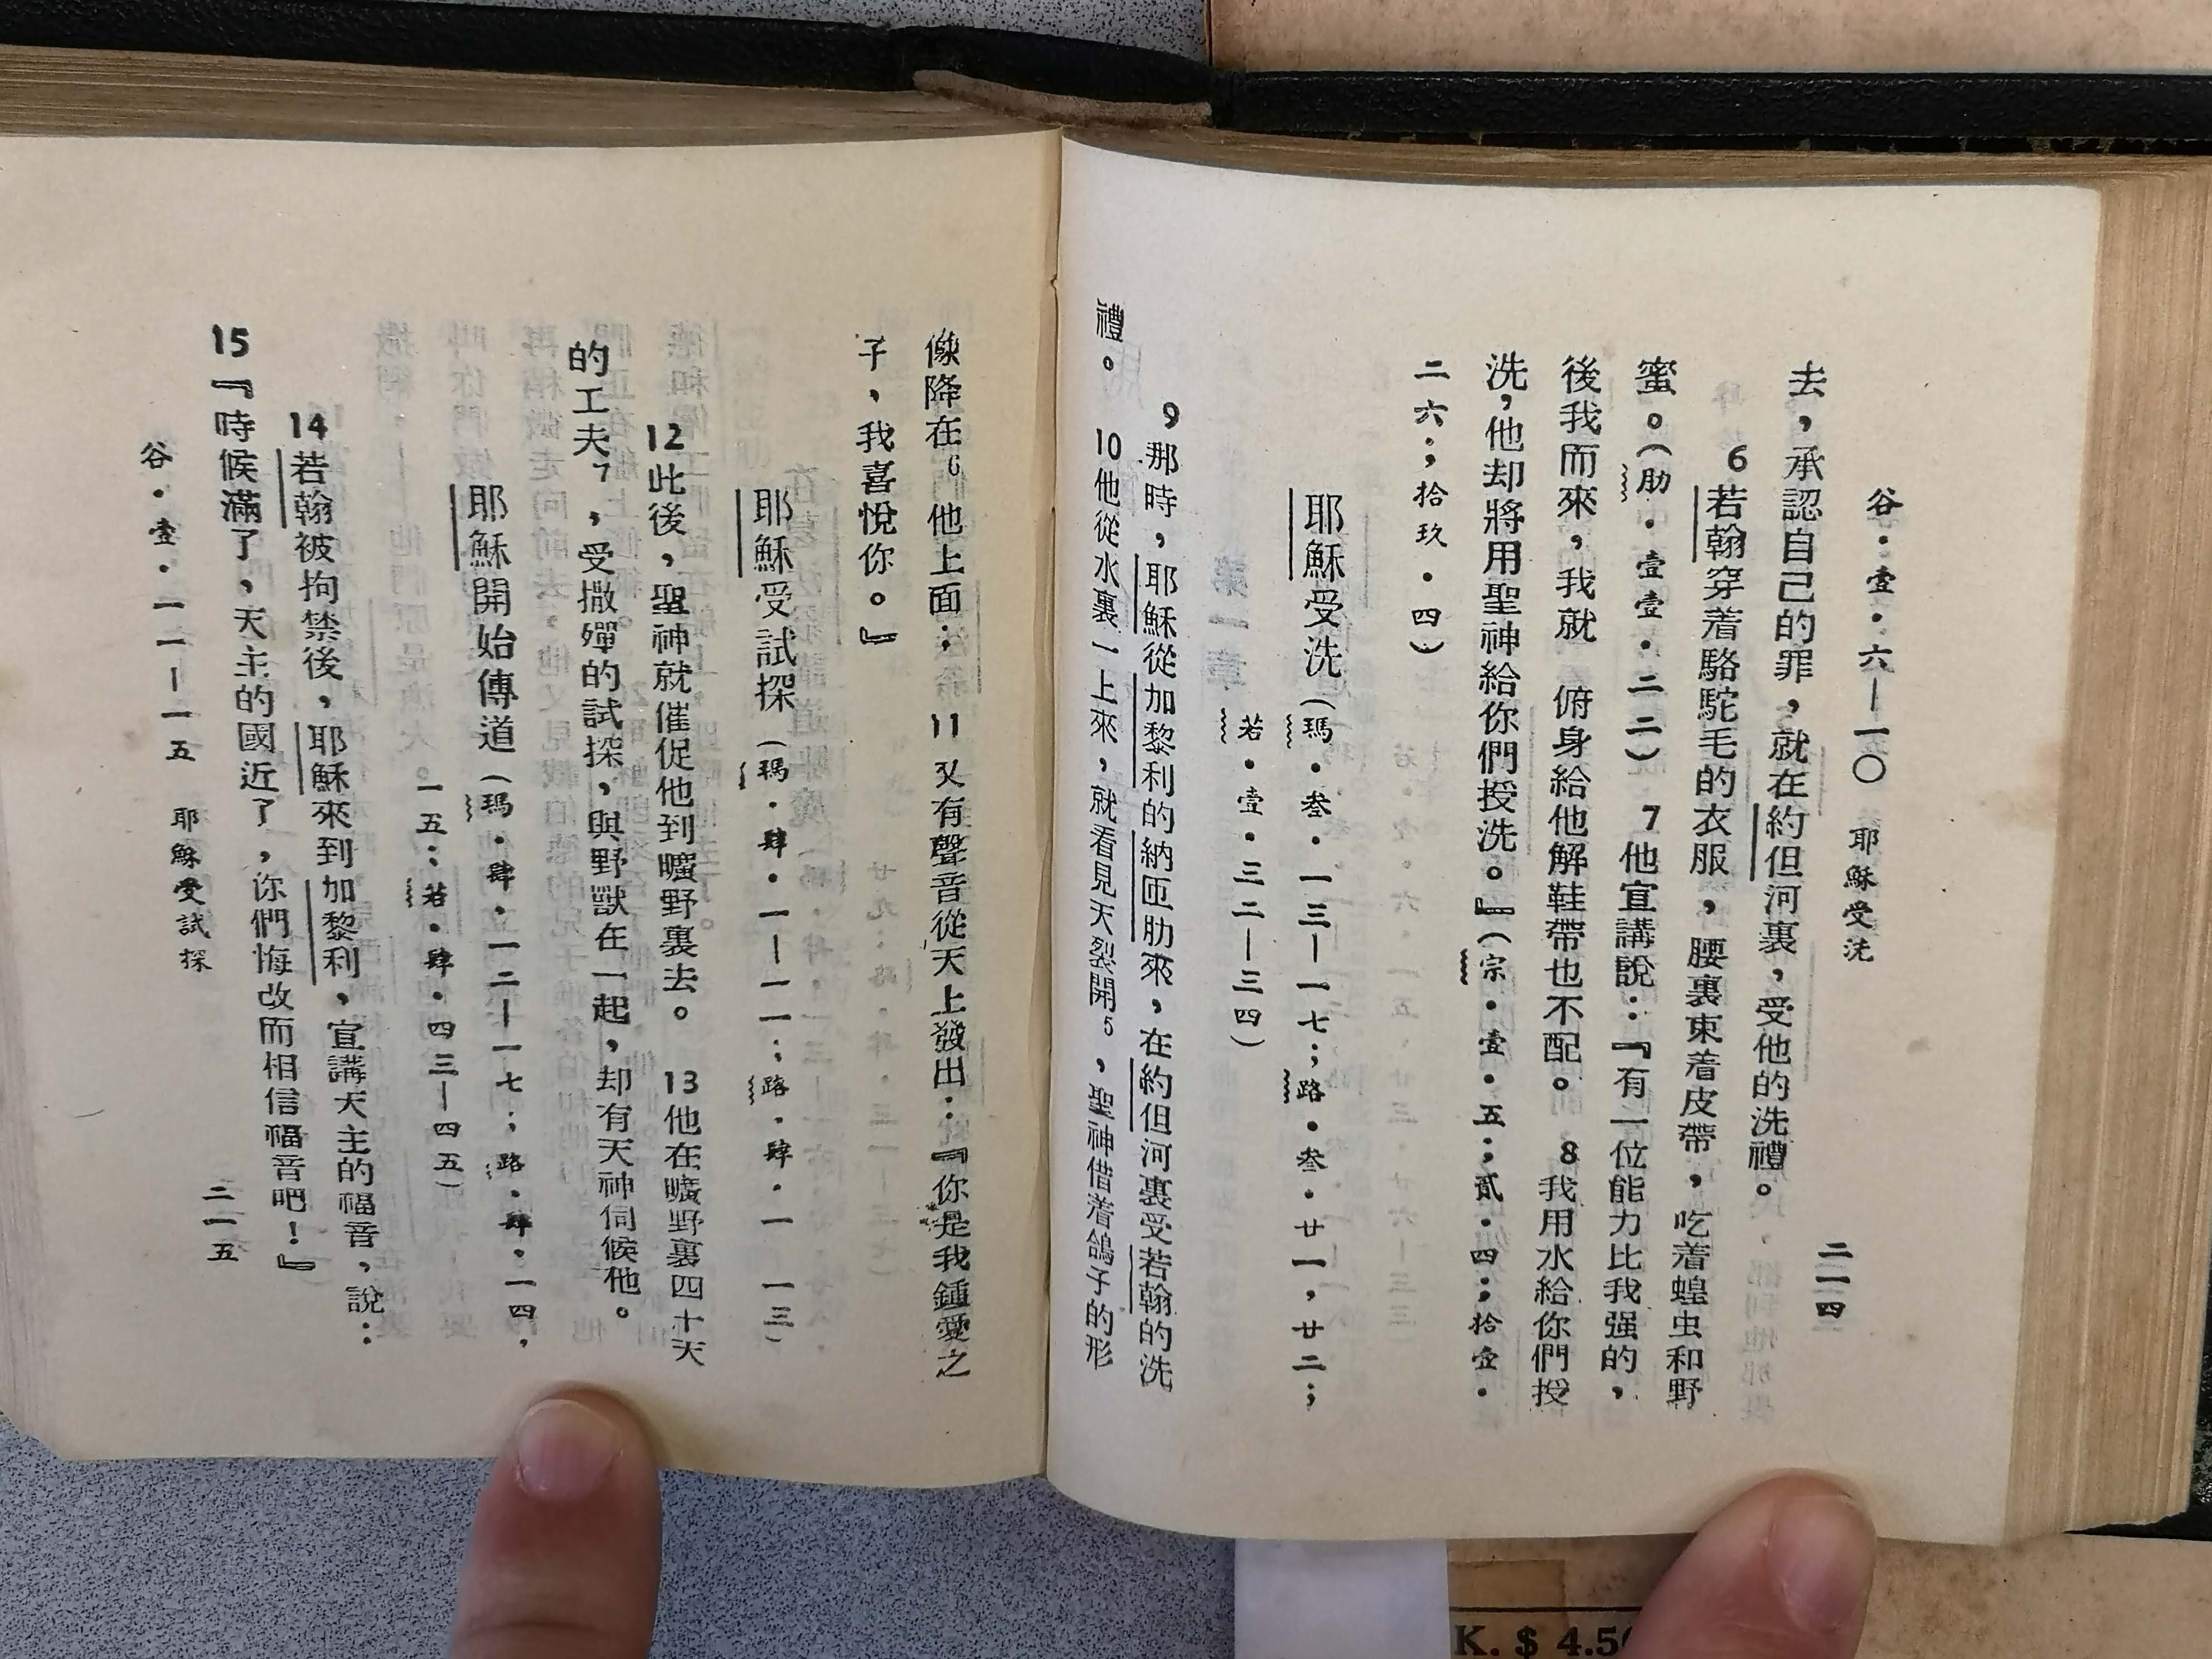 谷·壹·六—一〇　耶穌受洗　二一四
去，承認自己的罪，就在約但河裏，受他的洗禮。
6若翰穿着駱駝毛的衣服，腰裏束着皮帶，吃着蝗虫和野
蜜。（肋·壹壹·二二）7他宣講說：『有一位能力比我强的，
後我而來，我就　俯身給他解鞋帶也不配。8我用水給你們授
洗，他却將用聖神給你們授洗。』（宗·壹·五；貳·四；拾壹·
二六；拾玖·四）
耶穌受洗（瑪·叁·一三—一七；路·叁·廿一，廿二；
若·壹·三二—三四）
9那時，耶穌從加黎利的納匝肋來，在約但河裏受若翰的洗
禮。10他從水裏一上來，就看見天裂開5，聖神借着鴿子的形
像降在6他上面；11又有聲音從天上發出：『你是我鍾愛之
子，我喜悅你。』
耶穌受試探（瑪·肆·一—一一；路·肆·一—一三）
12此後，聖神就催促他到曠野裏去。13他在曠野裏四十天
的工夫7，受撒殫的試探，與野獸在一起，却有天神伺候他。
耶穌開始傳道（瑪·肆·一二—一七；路·肆·一四，
一五；若·肆·四三—四五）
14若翰被拘禁後，耶穌來到加黎利，宣講天主的福音，說：
15『時候滿了，天主的國近了，你們悔改而相信福音吧！』
谷·壹·一一—一五　耶穌受試探　二一五
K. $ 4.50